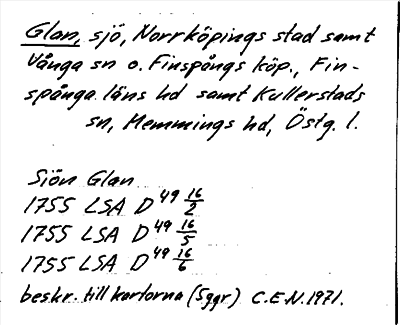 Glan, sjö, Norrköpings stad samt
Vånga sn o. Finspångs köp., Fin-
spånga läns hd samt Kullerstads
sn, Memmings hd, Östg. l.
Sjön Glan
1755 LSA D 49 16/2
1755 LSA D 49 16/5
1755 LSA D 49 16/6
beskr. till kartorna (5ggr) C.E.N. 1971.